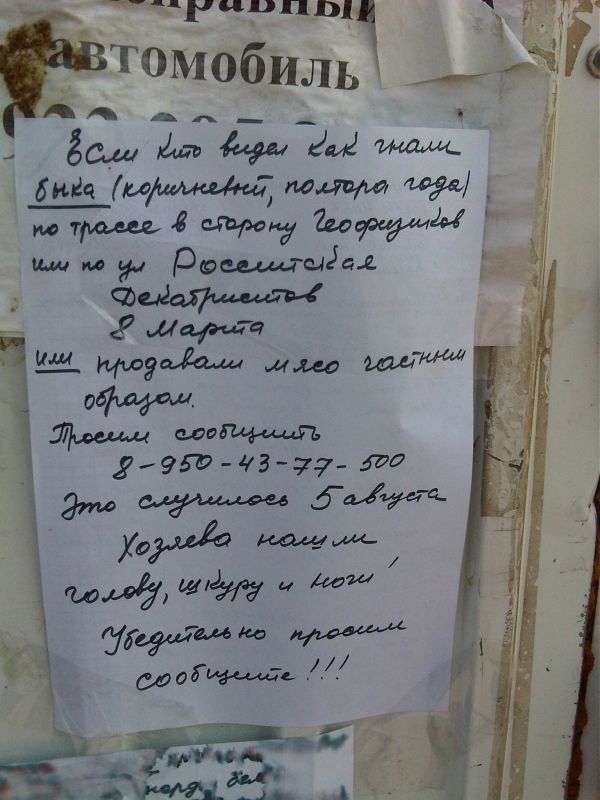 автомобиль
Если кто видел как гнали
быка (коричневый, полтора года)
по трассе в сторону Геофизиков
или по ул Россиитская
Декабристов
8 Марта
или продавали мясо частным
образом.
Просим сообщить
8-950-43-77-500
Это случилось 5 августа
Хозяева нашли
голову, шкуру и ноги!
Убедительно просим
сообщите!!!